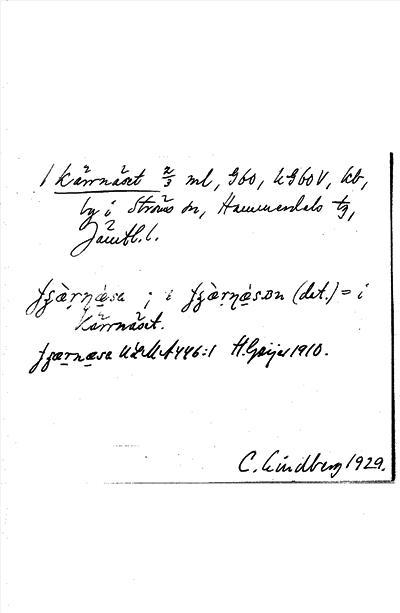 1 Kärrnäset 2/3 ml, G60, kG60V, kb,
by i Ströms sn, Hammerdals tg,
Jämtl. l.
fʒæ̀ṛṇǽsa ; i fʒæ̀ṛṇǽsɒn (dat.) = i
Kärrnäset.
fʒæṛṇæsa ULMA 446:1 H. Geijer 1910.
C. Lindberg 1929.